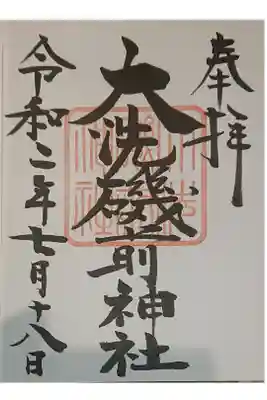 奉拝
大洗磯前神社
令和二年七月十八日